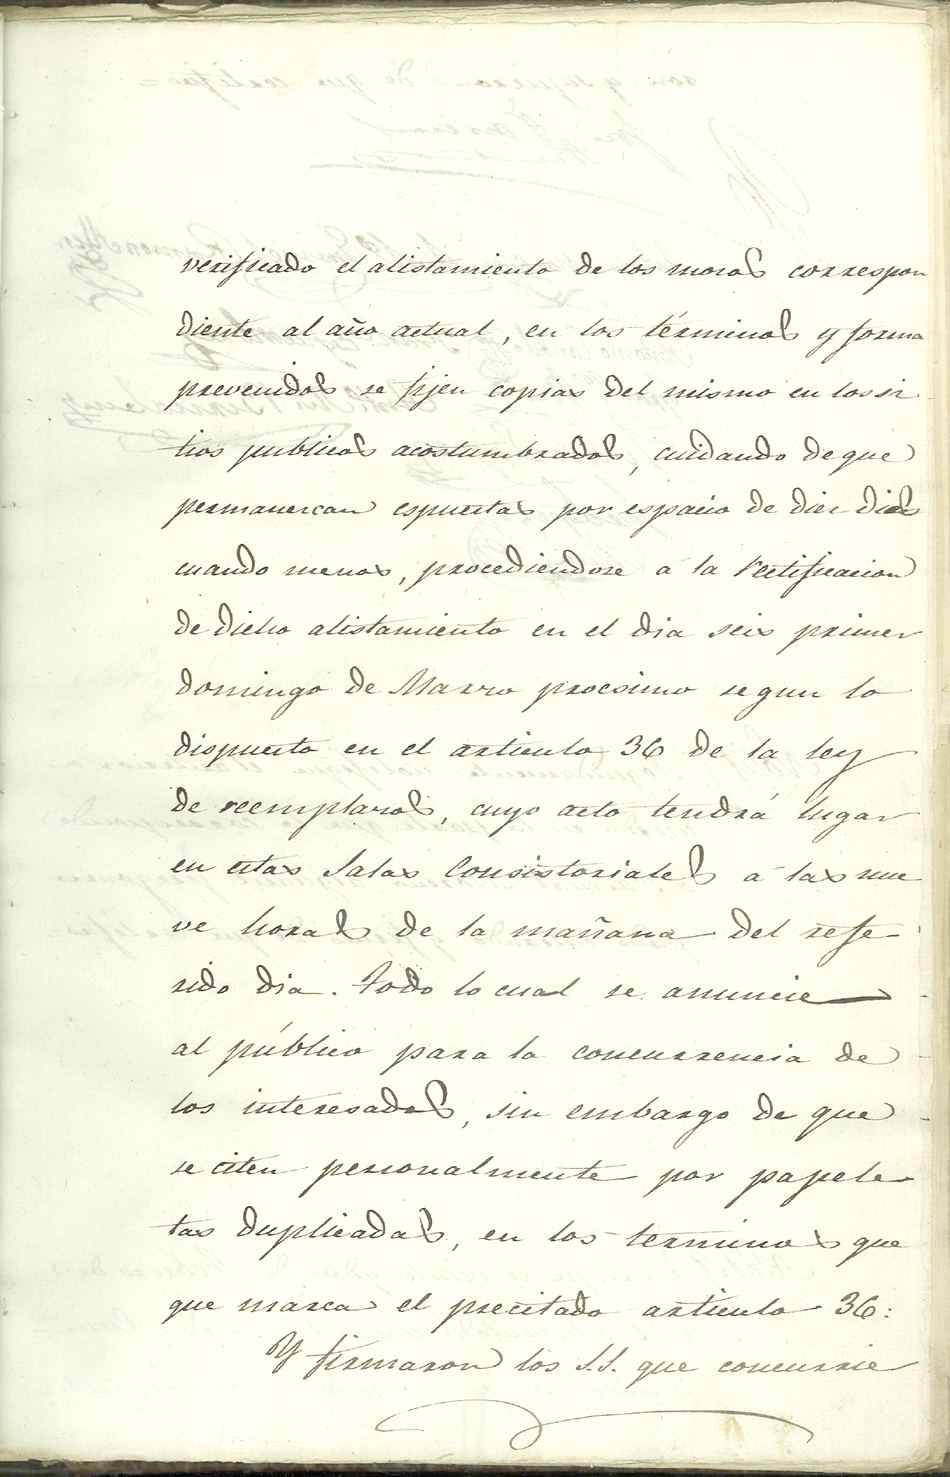 verificado el alistamiento de los mozos correspon
diente al año actual, en los términos y forma
prevenidos se fijen copias del mismo en los si
tios publicos acostumbrados, cuidando de que
permanezcan espuestas por espacio de diez dias
cuando menos, procediendose a la rectificacion
de dicho alistamiento en el dia seis primer
domingo de Marzo procsimo segun lo
dispuesto en el articulo 36 de la ley
de reemplazos, cuyo acto tendrá lugar
en estas Salas Consistoriales á las nue
ve horas de la mañana del refe
rido dia. Todo lo cual se anuncie
al público para la concurrencia de
los interesados, sin embargo de que
se citen personalmente por papele
tas duplicadas, en los terminos que
que marca el precitado articulo 36:
Y firmaron los S.S. que concurrie